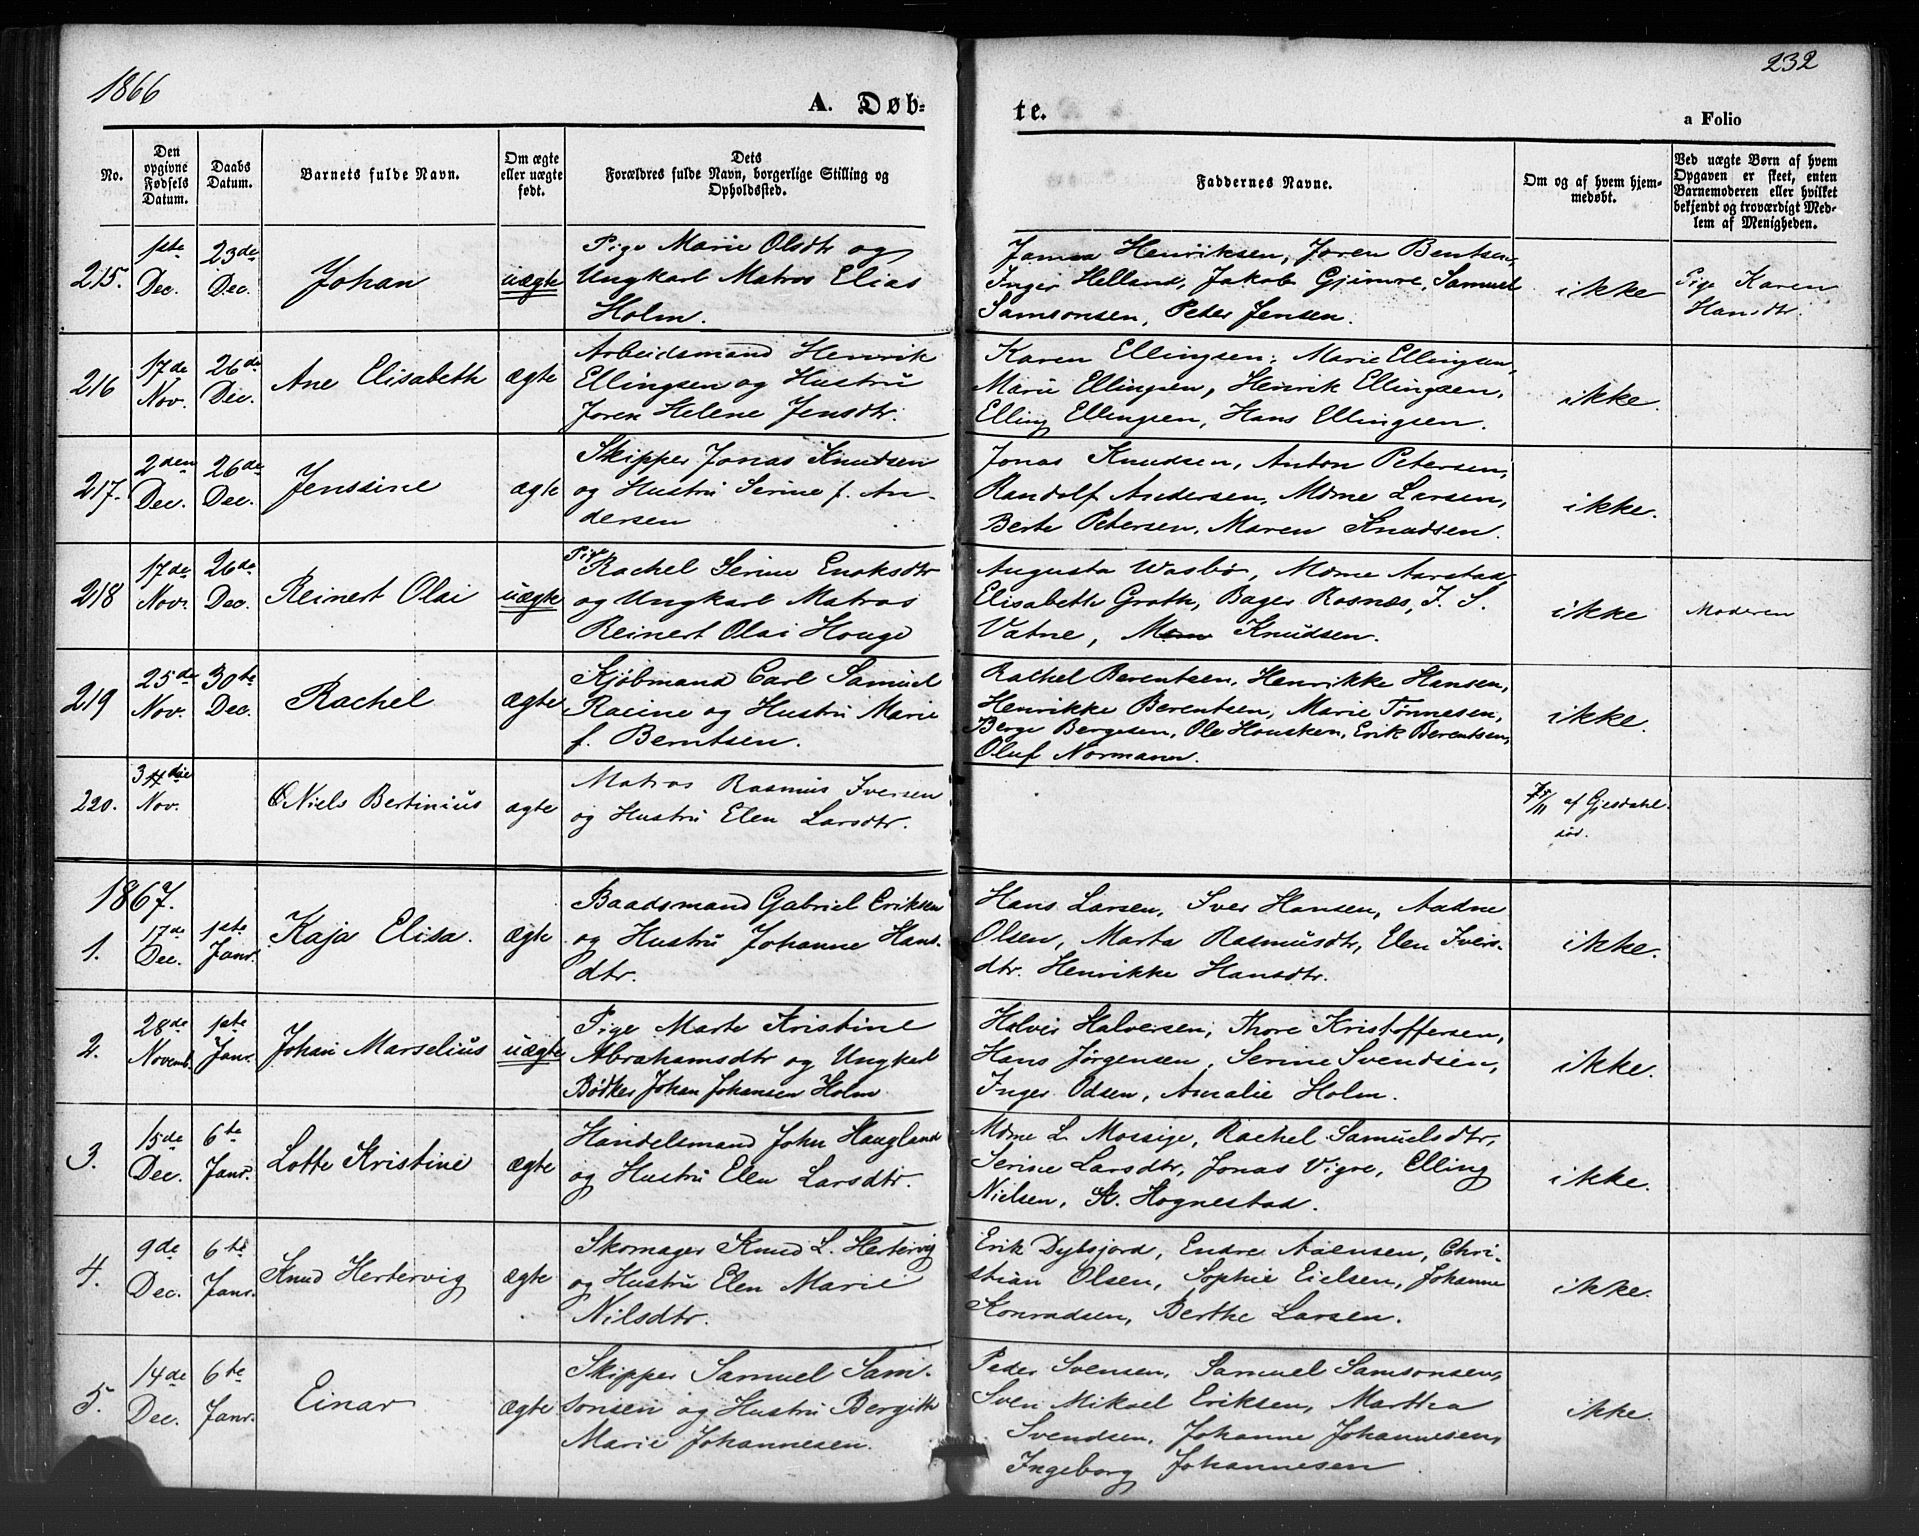 1866
232
A. Døb-
te.
a Folio
No.
Den opgivne Fødsels Datum.
Daabs Datum.
Barnets fulde Navn.
Om ægte eller uægte født.
Dets Forældres fulde Navn, borgerlige Stilling og Opholdssted.
Faddernes Navne.
Om og af hvem hjemmedøbt.
Ved uægte Børn af hvem Opgaven er skeet, enten Barnemoderen eller hvilket bekjendt og troværdigt Medlem af Menigheden.
215. 1ste Dec. 23de Dec. Johan uægte
Pige Marie Olsdtr og
Ungkarl Matros Elias
Holm.
Henriksen, Joren Bentsen,
Inger Helland, Jakob Gjimre, Samuel
Samsonsen, Peter Jensen.
ikke
Pige Karen
Hansdtr.
216 17de Nov. 26de Dec. Ane Elisabeth ægte
Arbeidsmand Henrik
Ellingsen og Hustru
Joren Helene Jensdtr.
Karen Ellingsen, Marie Ellingsen,
Marie Ellingsen, Henrik Ellingsen,
Elling Ellingsen, Hans Ellingsen.
ikke.
217. 2den Dec. 26de Dec. Jenssine ægte
Skipper Jonas Knudsen
og Hustru Serine f. An-
dersen
Jonas Knudsen, Anton Petersen,
Randolf Andersen, Mdme Larsen,
Berte Petersen, Maren Knudsen.
ikke.
218 17de Nov. 26de Dec. Reinert Olai uægte
Pige Rachel Serine Enoksdtr
og Ungkarl Matros
Reinert Olai Houge
Augusta Wasbø, Mdme Aarstad,
Elisabeth Groth, Bager Rosnes, J. S.
Vatne, Knudsen.
ikke
Moderen
219 25de Nov. 30te Dec. Rachel ægte
Kjøbmand Carl Samuel
Racine og Hustru Marie
f. Berntsen.
Rachel Berentsen, Henrikke Hansen,
Henrikke Berentsen, Marie Tønnesen,
Berge Bergesen, Ole Housken, Erik Berentsen,
Oluf Normann.
ikke.
220. Nov. Niels Bertinius ægte
Matros Rasmus Iversen
og Hustru Elen Larsdtr.
af Gjesdahl
1867.
1. 17de Dec. 1ste Janr. Kaja Elisa. ægte
Baadsmand Gabriel Eriksen
og Hustru Johanne Hans-
dtr.
Hans Larsen, Iver Hansen, Aadne
Olsen, Marta Rasmusdtr, Elen Ivers-
dtr. Henrikke Hansdtr.
ikke.
2. 28de Novemb. 1ste Janr. Johan Marselius uægte
Pige Marte Kristine
Abrahamsdtr og Ungkarl
Bødker Johan Johansen Holm
Halver Halversen, Thore Kristoffersen,
Hans Jørgensen, Serine Svendsen,
Inger Odsen, Amalie Holm.
ikke.
3. 15de Dec. 6te Janr. Lotte Kristine ægte
Handelsmand John Haugland
og Hustru Elen Larsdtr.
Mdme L. Mossige, Rachel Samuelsdtr,
Serine Larsdtr, Jonas Vigre, Elling
Nielsen, A. Hognestad.
ikke.
4. 9de Dec. 6te Janr. Knud Hertervig ægte
Skomager Knud L. Hertervig
og Hustru Elen Marie
Nilsdtr.
Erik Dybsjord, Endre Aaensen, Chri-
stian Olsen, Sophie Eielsen, Johanne
Konradsen, Berthe Larsen.
ikke.
5. 14de Dec. 6te Janr. Einar ægte
Skipper Samuel Sam-
sonsen og Hustru Bergithe
Marie Johannesen.
Peder Svensen, Samuel Samsonsen,
Sven Mikael Eriksen, Marthea
Svendsen, Johanne Johannesen,
Ingeborg Johannesen
ikke.